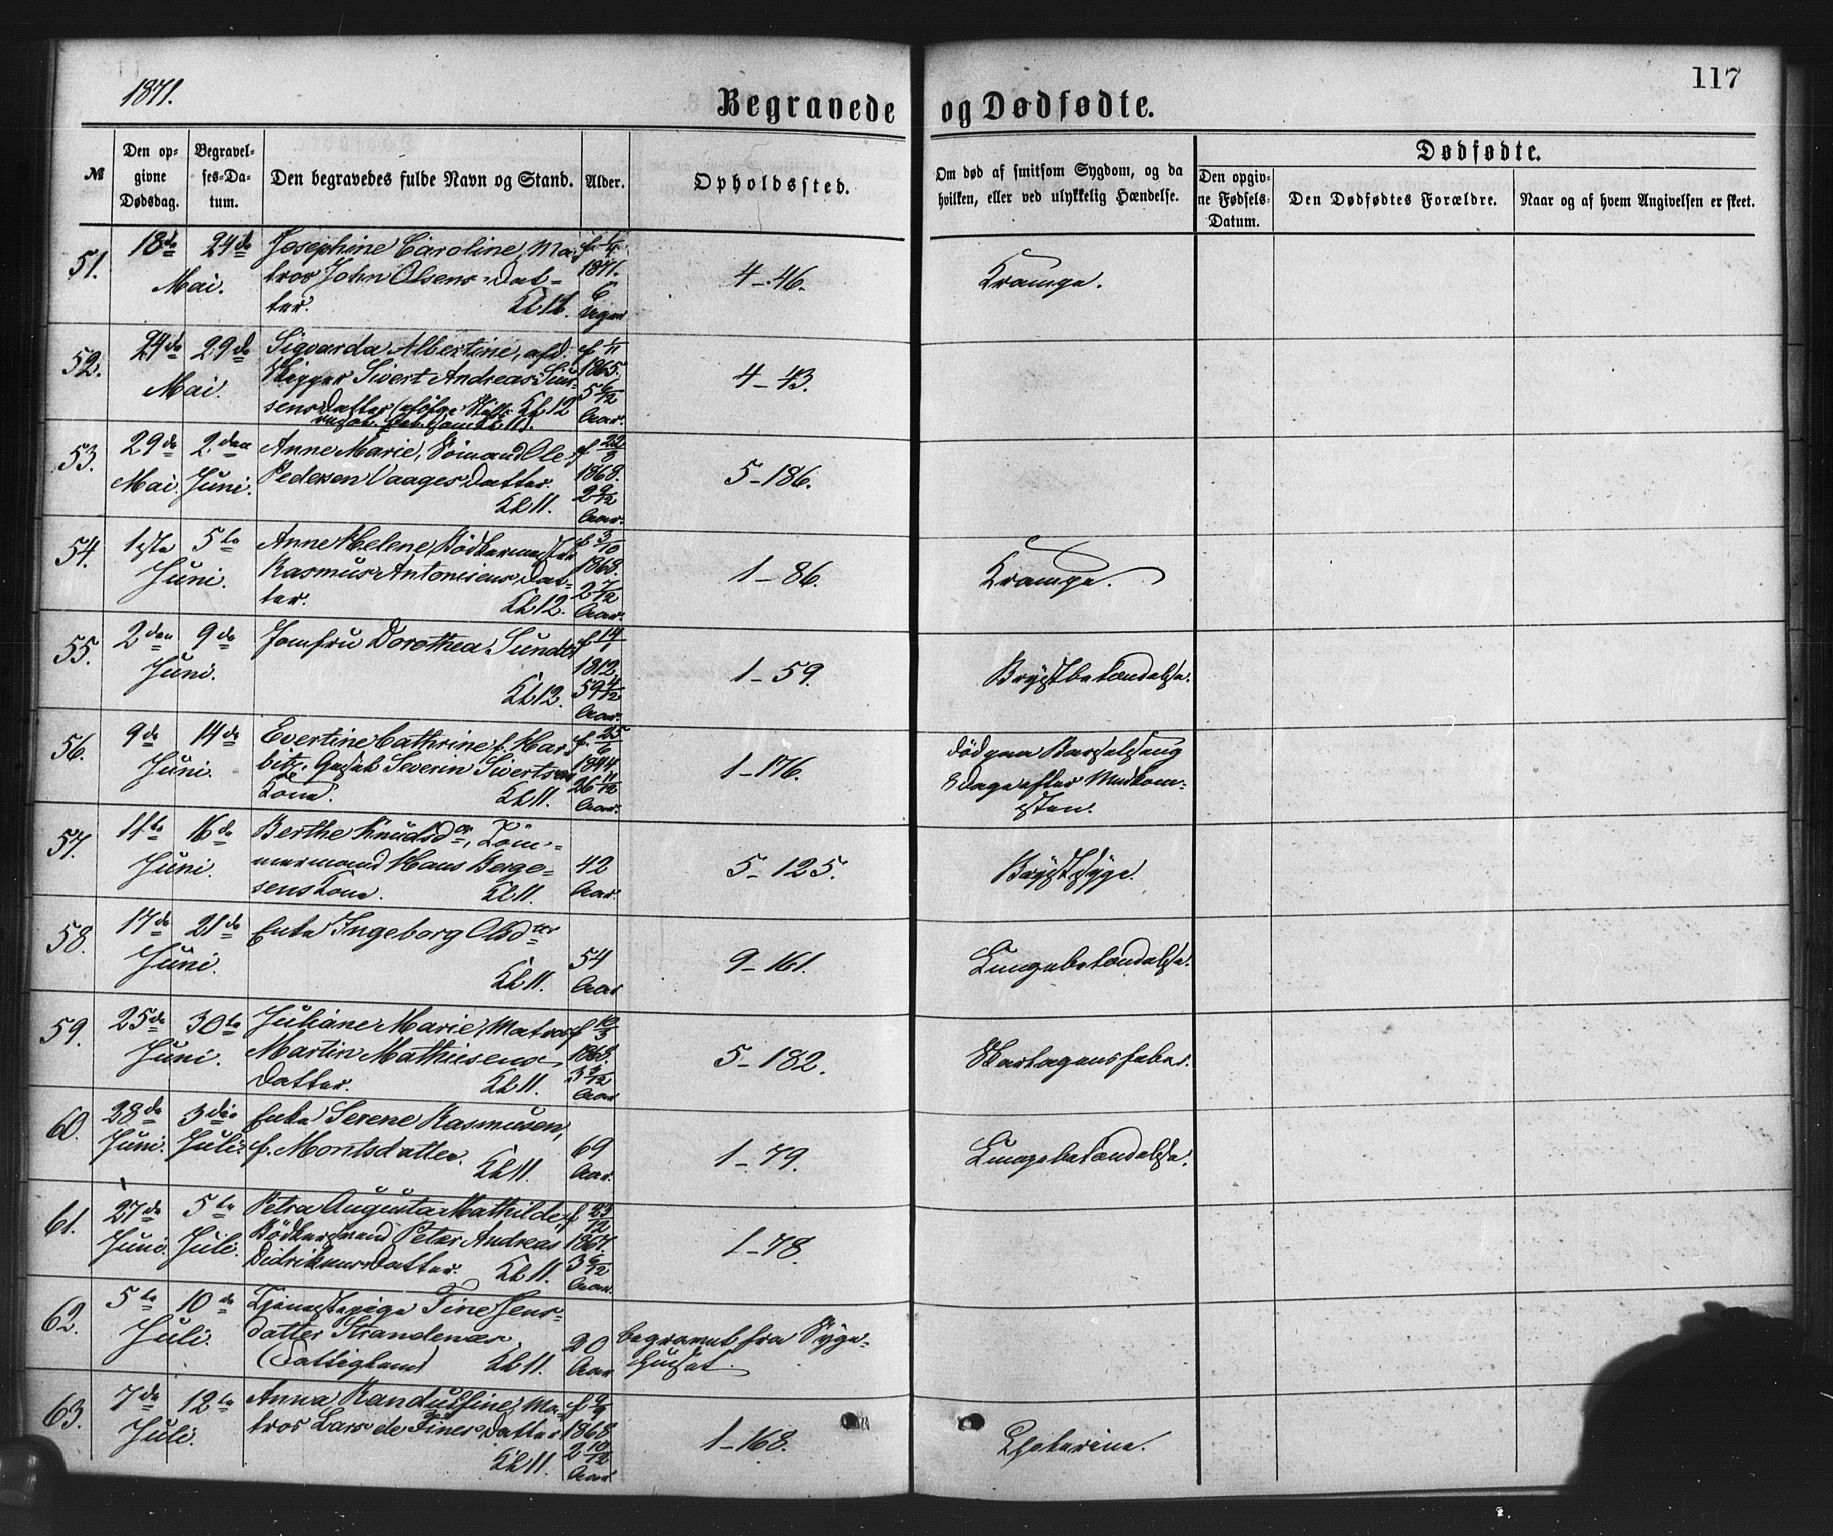 1871.
117
Begravede og Dødfødte.
№
Den opgivne Dødsdag.
Begravelses-Datum.
Den begravedes fulde Navn og Stand.
Alder.
Opholdssted.
Om død af smitsom Sygdom, og da hvilken, eller ved ulykkelig Hændelse.
Dødfødte.
Den opgivne Fødsels-Datum.
Den Dødfødtes Forældre.
Naar og af hvem Angivelsen er skeet.
51. 18de 24de Mai.
Josephine Caroline, Ma-
tros John Olsens Dat-
ter. Kl 12.
f. 1/4 1871. 6 Uger
4-46.
Krampe.
52. 24de 29de Mai.
Sigvarda Albertine, afd.
Skipper Sivert Andreas
sens Datter Kl 12
f 1/11 1865. 5 6/12 Aar.
4-43.
53. 29de Mai. 2den Juni.
Anne Marie, Sömand Ole
Pedersen Vaages Datter.
Kl 11.
f 22/8 1868. 2 9/12 Aar.
5-186.
54. 1ste 5te Juni.
Anne Helene, Bödkermester
Rasmus Antonisens Dat-
ter. Kl 12.
f. 3/10 1868. 2 7/12 Aar.
1-86.
Krampe.
55. 2den 9de Juni.
Jomfru Dorothea Sundt
Kl 12.
f. 14/1 1812. 59 4/12 Aar.
1-59.
Brystbetændelse.
56. 9de 14de Juni.
Evertine Cathrine f. Har-
bitz, Severin Sivertsens
Kone. Kl 11.
f. 25/6 1844. 26 11/12 Aar.
1-176.
död paa Barselseng
8 Dage efter Nedkom-
sten.
57. 11te 16de Juni.
Berthe Knudsdr, Töm-
mermand Hans Berge-
sens Kone. Kl 11.
42 Aar.
5-125.
Brystsyge.
58. 17de 21de Juni.
Enke Ingeborg Olsdtter
Kl 11.
54 Aar
9-161.
Lungebetændelse.
59. 25de 30te Juni.
Juliane Marie, Matros
Martin Mathiesens
Datter. Kl 11.
f 10/3 1868. 3 3/12 Aar
5-182.
Skarlagensfeber.
60. 28de Juni. 3die Juli.
Enke Serene Rasmusen,
f. Montsdatter. Kl 11.
69 Aar.
1-79.
Lungebetændelse.
61. 27de Juni. 5te Juli.
Petra Augusta Mathilde,
Bödkersvend Peter Andreas
Didriksens Datter. Kl 11.
f 23/12 1867. 3 6/12 Aar.
1-78.
62. 5te 10de Juli.
Tjenestepige Tine Jens-
datter Strandenæs.
(Fattiglem) Kl 11.
20 Aar
begravet fra Syge-
huset.
63. 7de 12te Juli.
Anna Randulfine, Ma-
tros Lars de Fines Datter
Kl 11.
f 9/9 1868 2 10/12 Aar.
1-168.